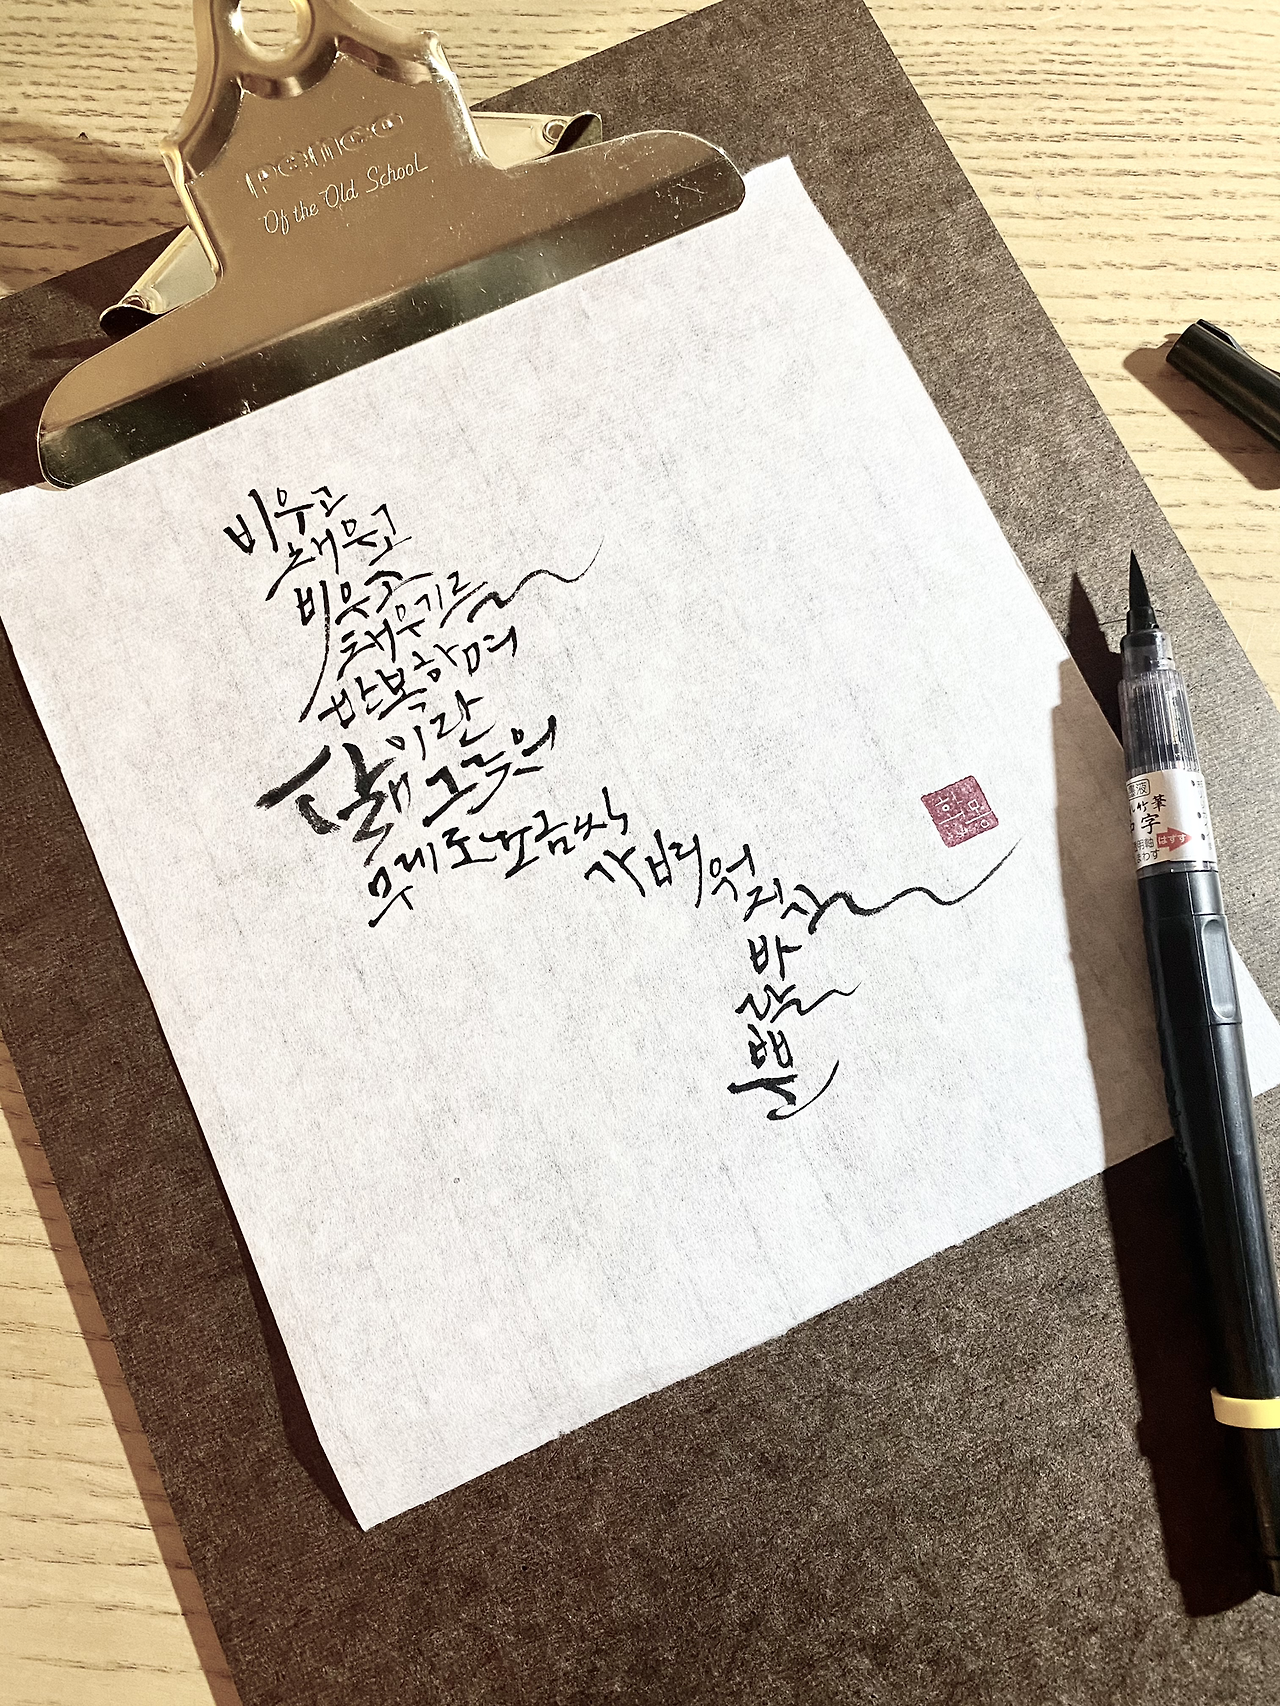 PENCO
Of the Old School
비우고
채우고
비우고
채우기를
반복하며
삶이란
그릇의
무게도 조금씩
가벼워
지길
바랄
뿐
はずす